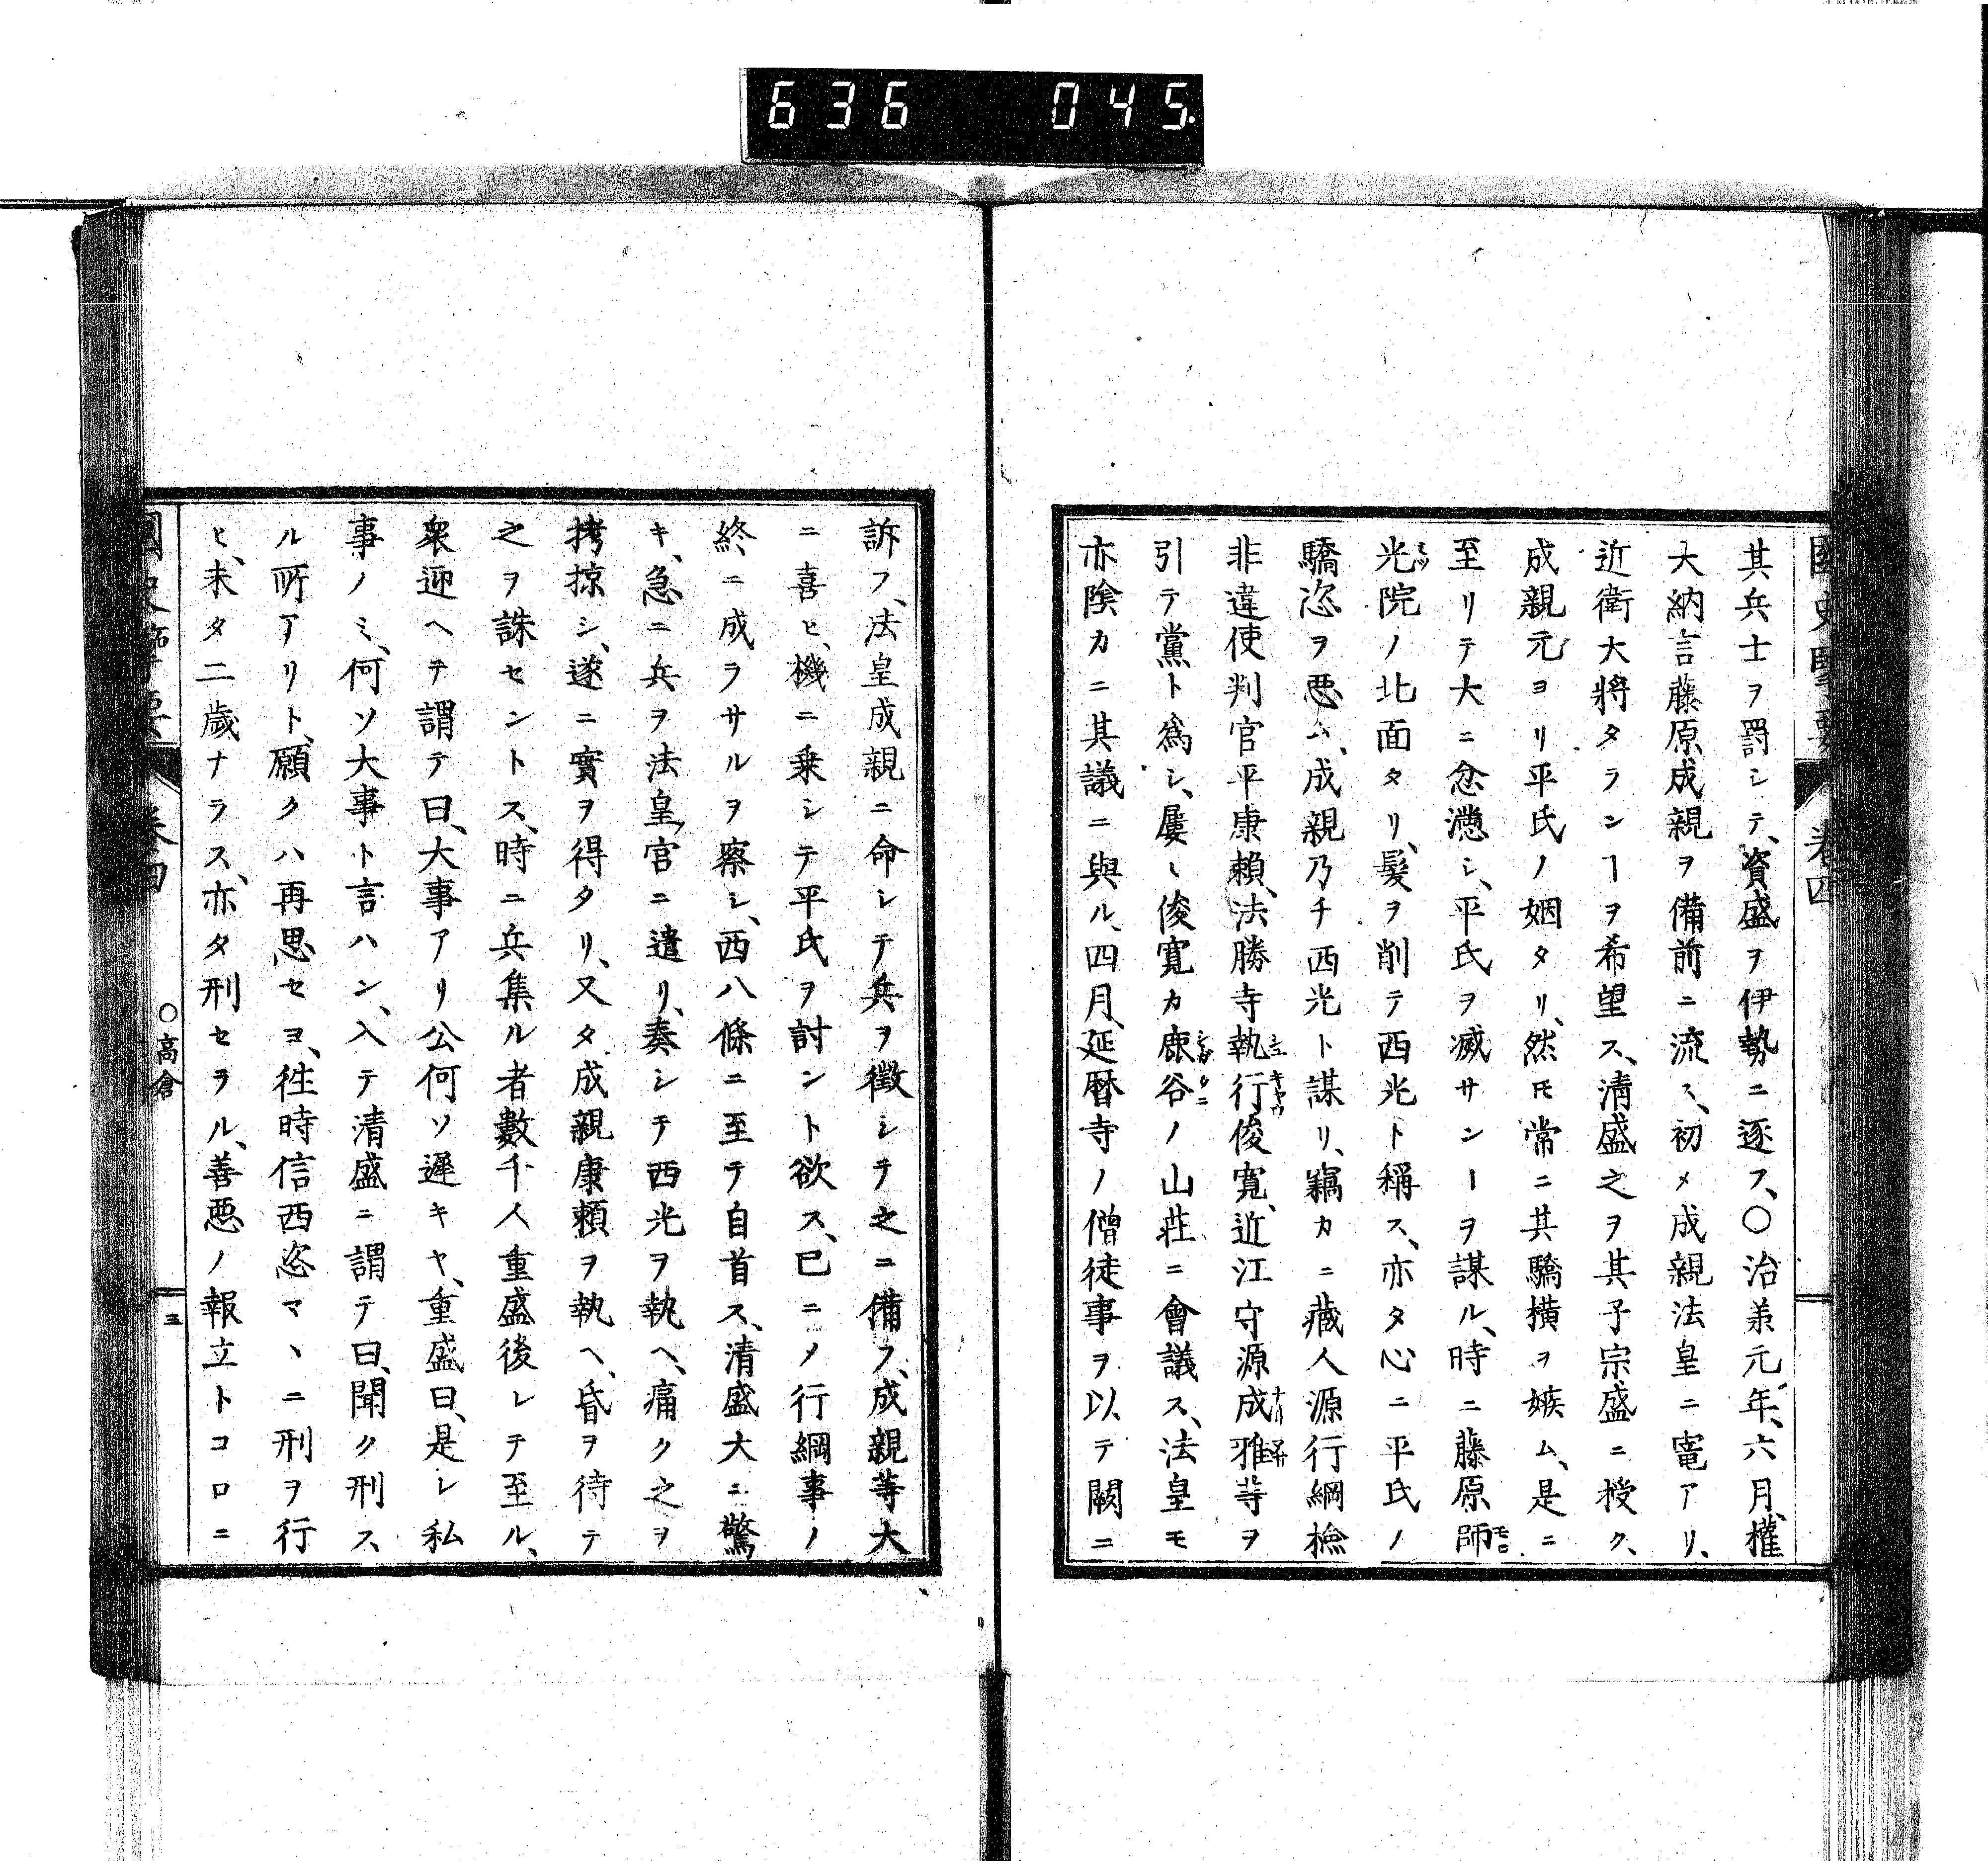 636 045.
國史擥要 卷四
其兵士ヲ罰シテ、資盛ヲ伊勢ニ逐フ、〇治羕元年、六月、權
大納言藤原成親ヲ備前ニ流ス、初メ成親法皇ニ寵アリ、
近衛大將タランヿヲ希望ス、淸盛之ヲ其子宗盛ニ授ク、
成親元ヨリ平氏ノ姻タリ、然モ常ニ其驕横ヲ嫉ム、是ニ
至リテ大ニ忿懣シ、平氏ヲ滅サンヿヲ謀ル、時ニ藤原師
光院ノ北面タリ、髮ヲ削テ西光ト稱ス、亦タ心ニ平氏ノ
驕恣ヲ惡ム、成親乃チ西光ト謀リ、竊カニ藏人源行綱檢
非違使判官平康賴、法勝寺執行俊寛、近江守源成雅等ヲ
引テ黨ト爲シ、屢〻俊寛カ鹿谷ノ山莊ニ會議ス、法皇モ
亦陰カニ其議ニ與ル、四月、延暦寺ノ僧徒事ヲ以テ闕ニ
訴フ、法皇成親ニ命シテ兵ヲ徵シテ之ニ備フ、成親等大
ニ喜ヒ、機ニ乗シテ平氏ヲ討ント欲ス、已ニノ行綱事ノ
終ニ成ラサルヲ察シ、西八條ニ至テ自首ス、清盛大ニ驚
キ、急ニ兵ヲ法皇宮ニ遣リ、奏シテ西光ヲ執ヘ、痛ク之ヲ
拷掠シ、遂ニ實ヲ得タリ、又タ成親康賴ヲ執ヘ、昏ヲ待テ
之ヲ誅セントス、時ニ兵集ル者數千人重盛後レテ至ル、
衆迎ヘテ謂テ曰、大事アリ公何ソ遲キヤ、重盛曰、是レ私
事ノミ、何ソ大事ト言ハン、入テ清盛ニ謂テ曰、聞ク刑ス
ル所アリト、願クハ再思セヨ、徃時信西恣マヽニ刑ヲ行
ヒ、未タ二歲ナラス、亦タ刑セラル、善惡ノ報立トコロニ
國史擥要 卷四 〇高倉 三